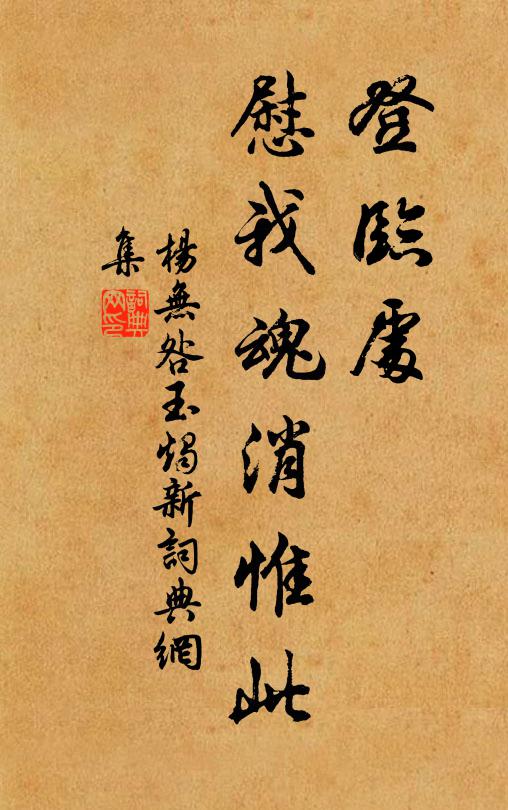 登臨處
慰我魂消惟此
楊無咎玉燭新詞典網
集
詞典
网印